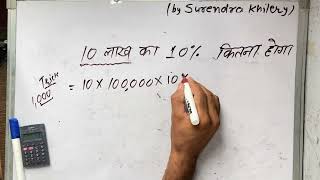 (by Surendra Khilery)
10 लाख का 10% कितना होगा
Trick
1,000
= 10 × 100,000 × 10 %